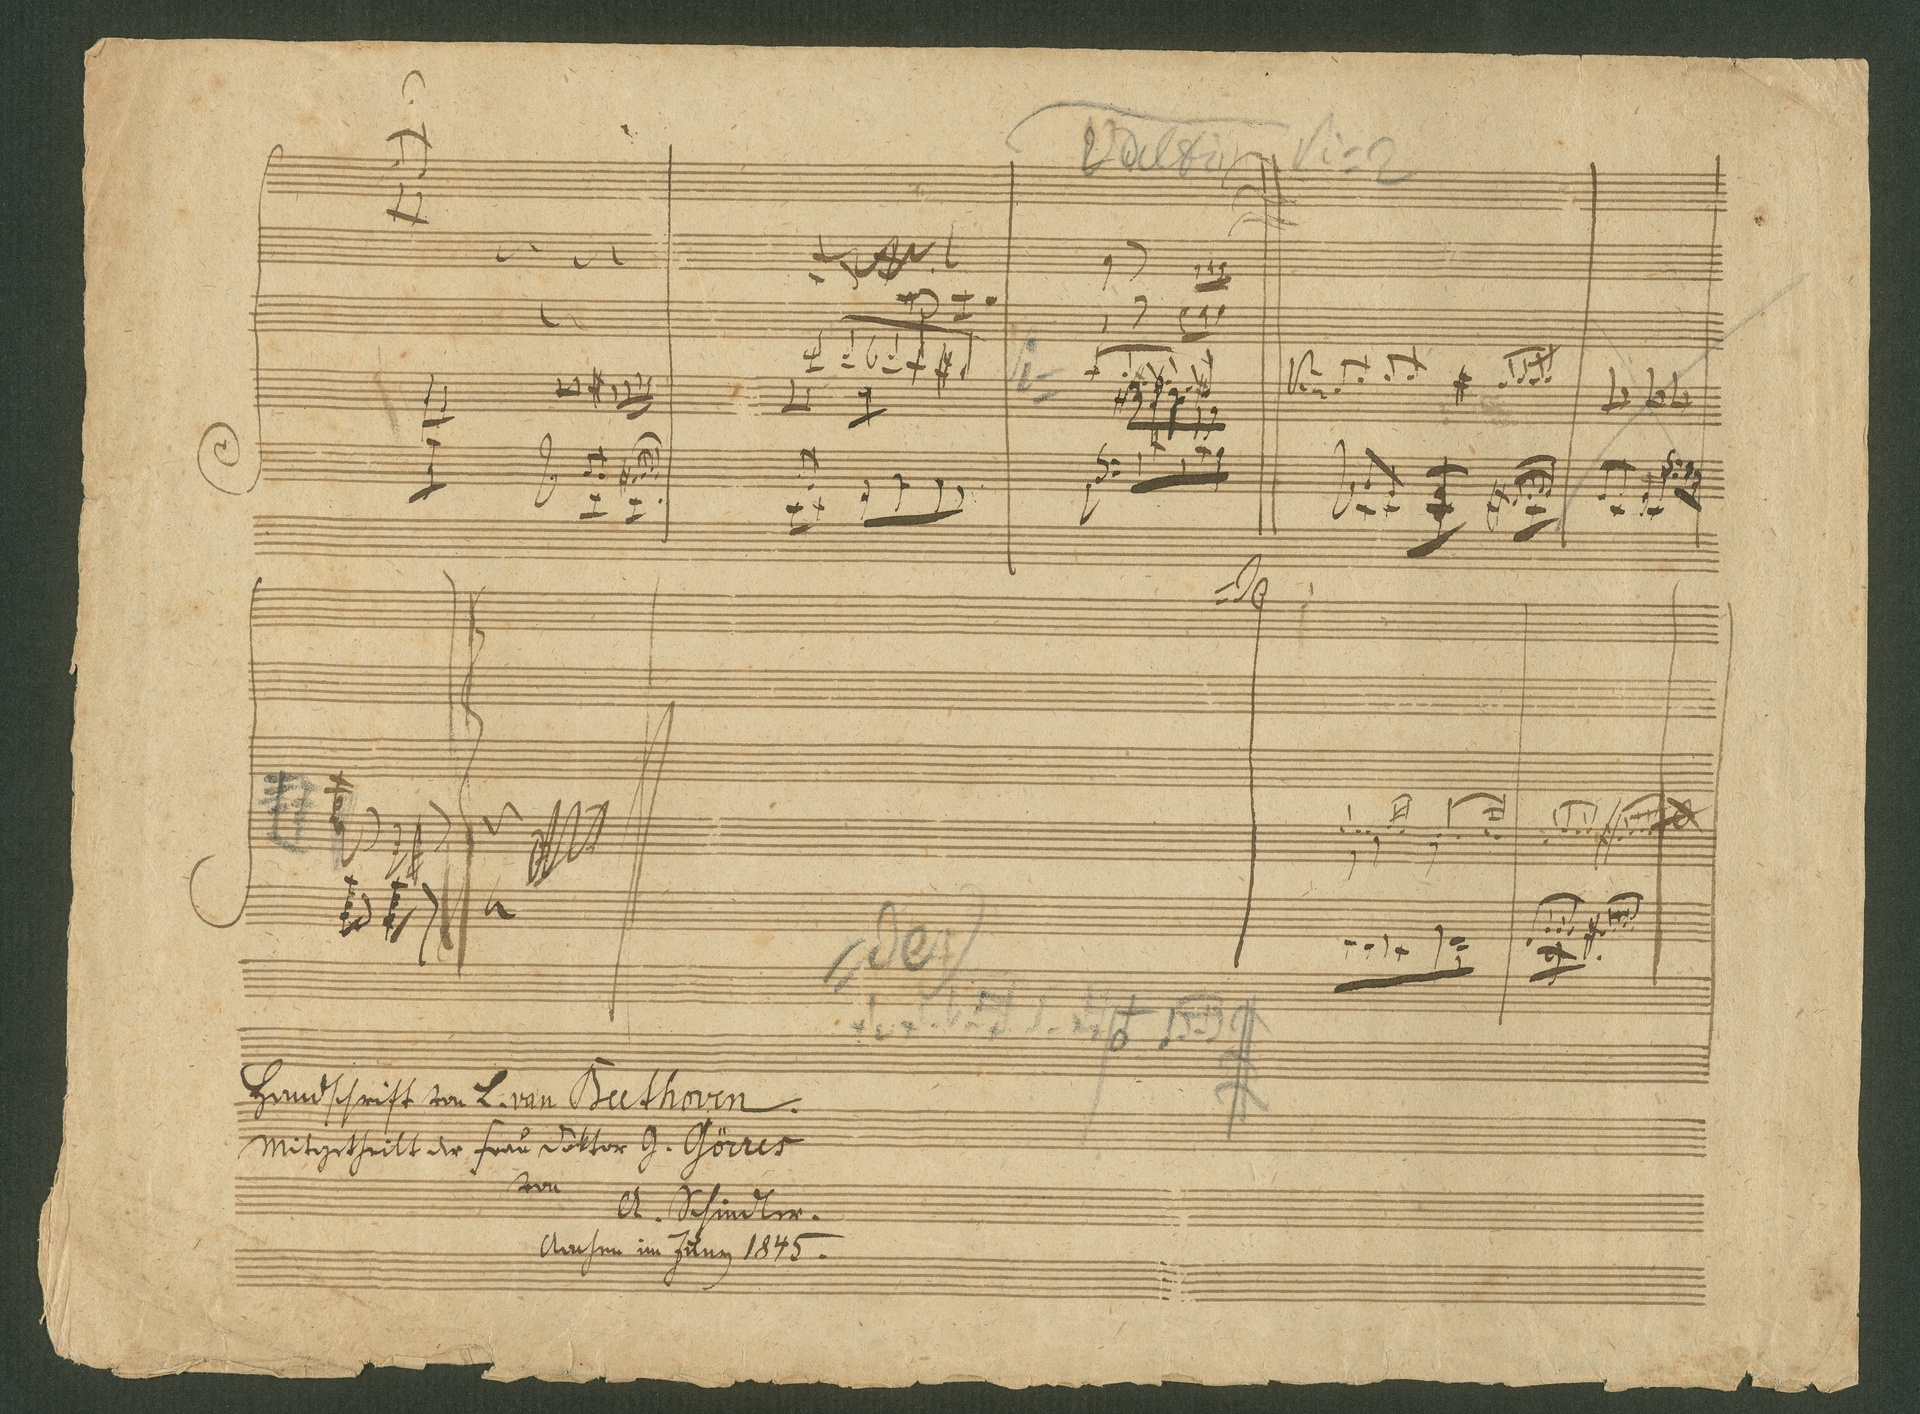 Vi=
=de
=de
Handschrift von L. van Beethoven.
Mitgetheilt der Frau Doktor G. Görres
von
A. Schindler.
Aachen im Juny 1845.